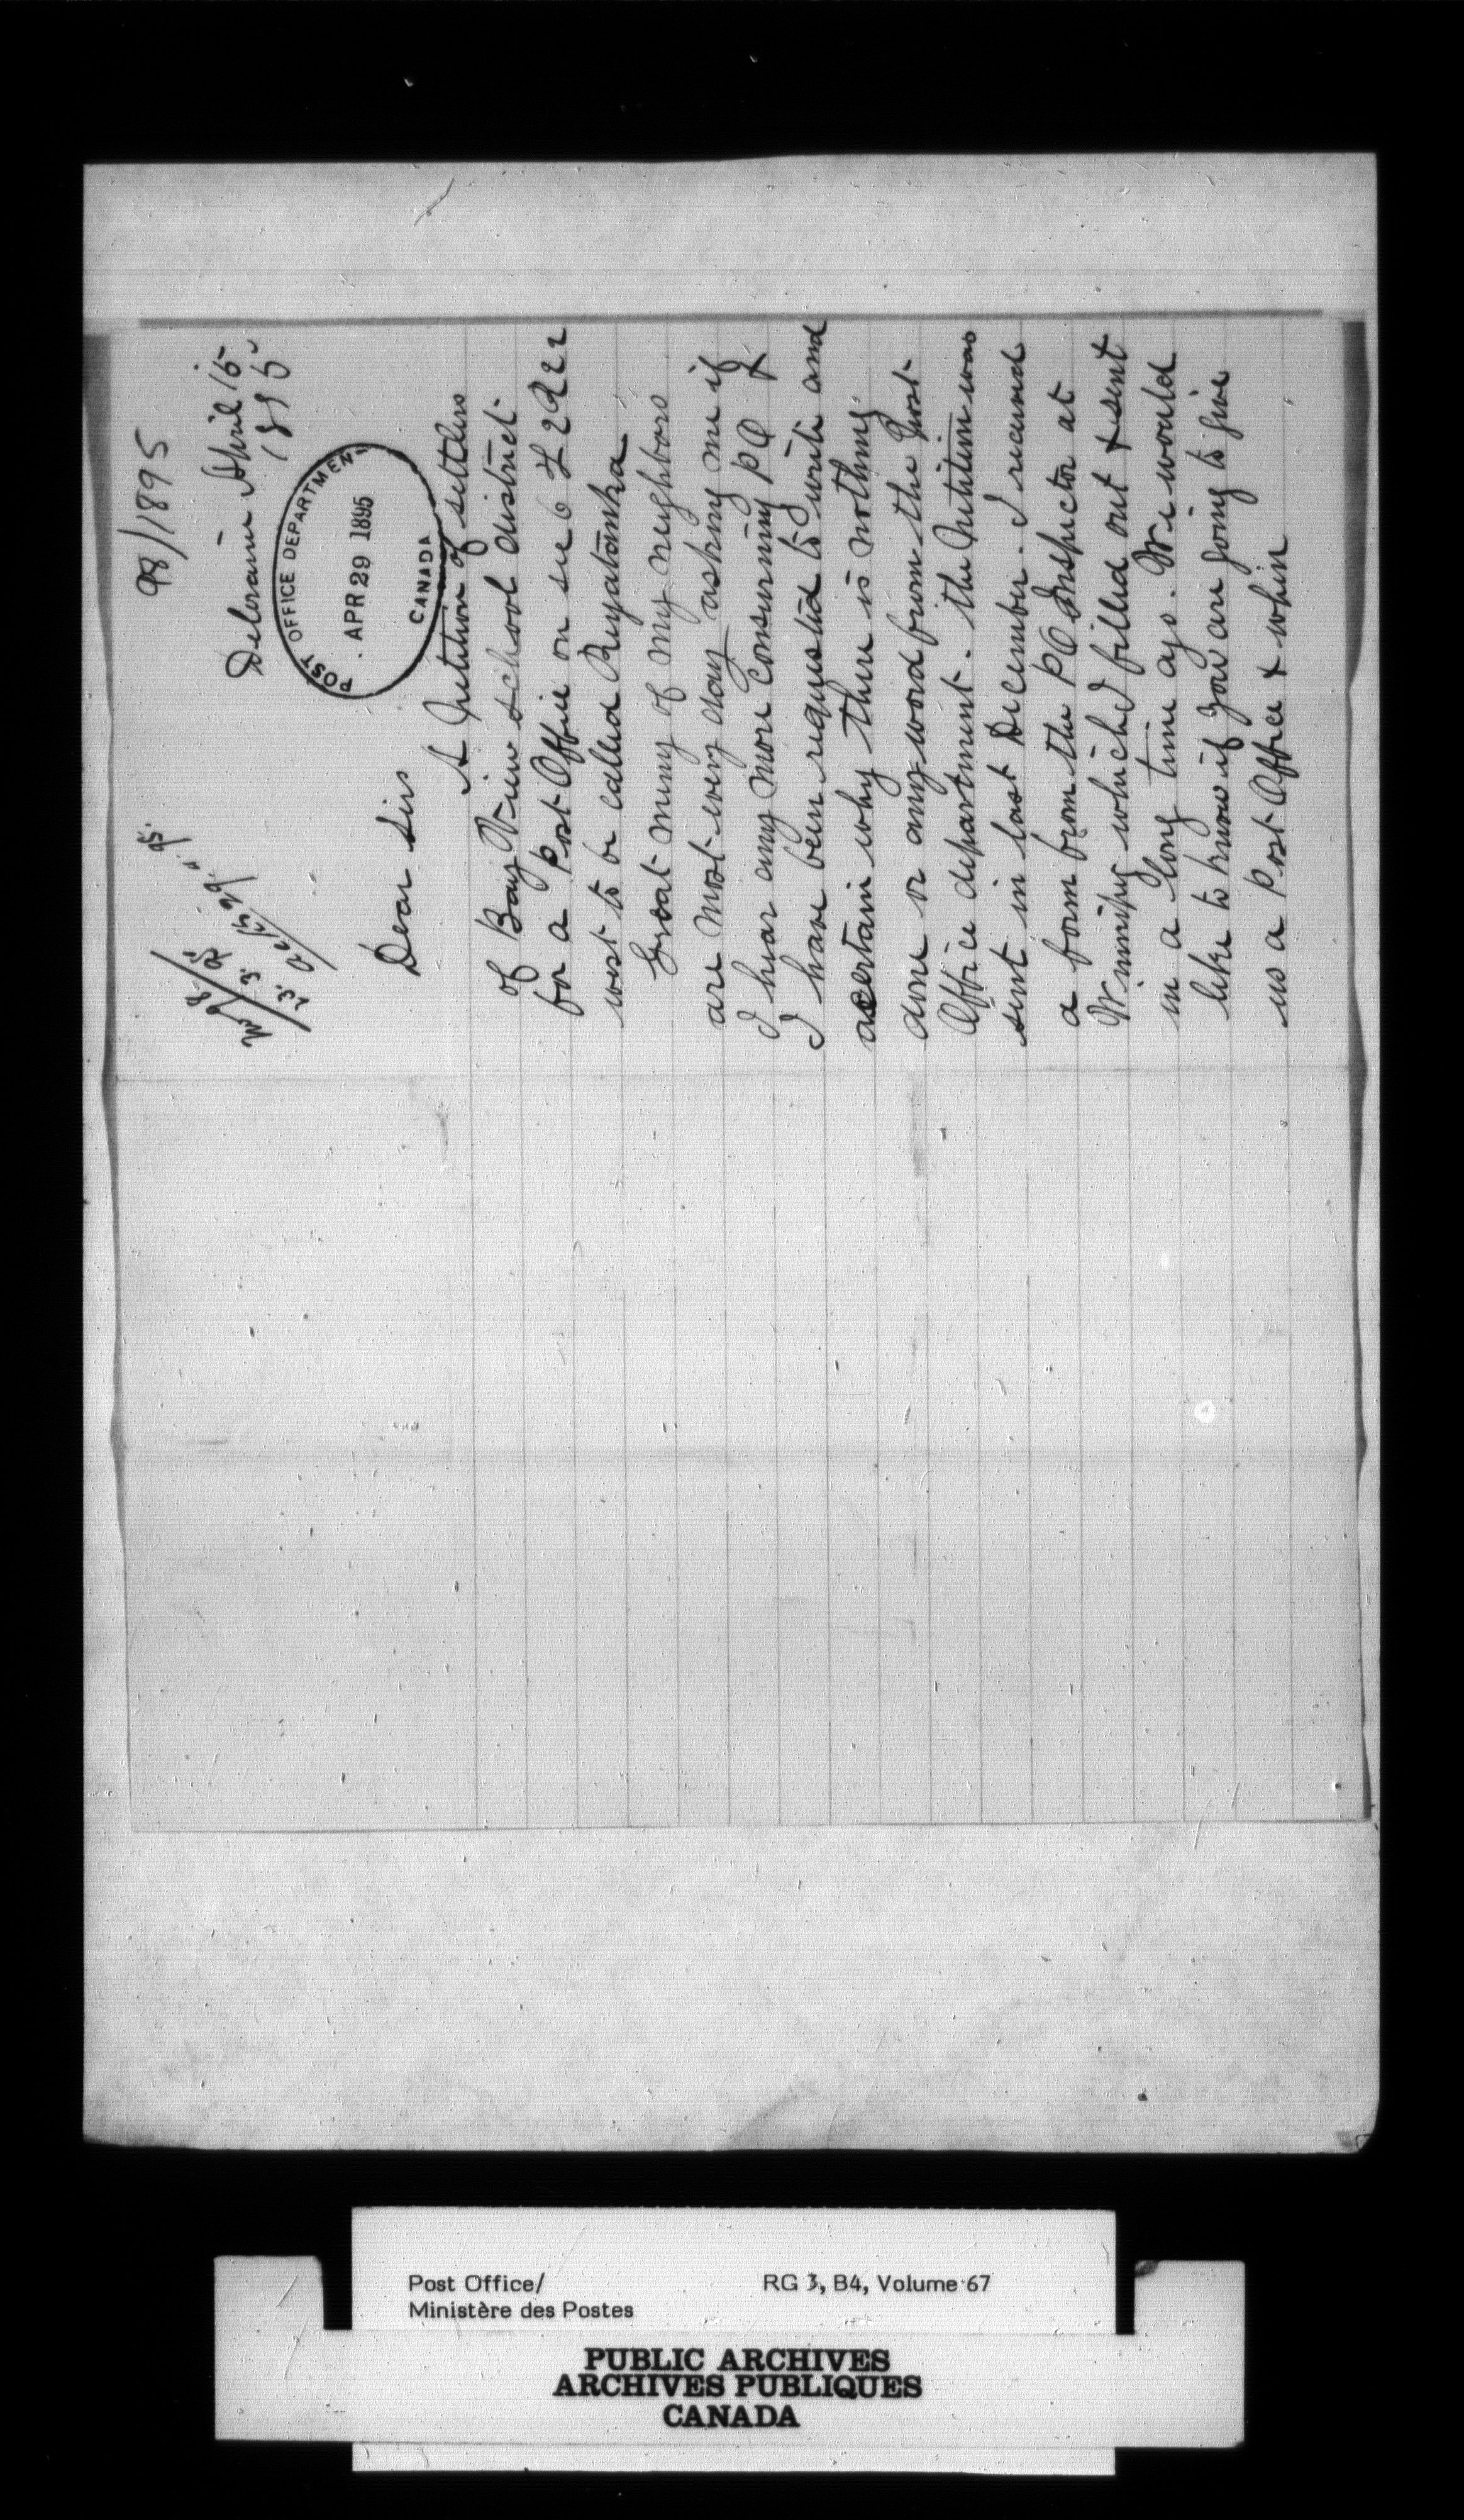 98/1895
Deloraine April 15
1895
POST OFFICE DEPARTMENT
APR 29 1895
CANADA
Dear Sir
A Petition of settlers
of Bay View School district
for a Post Office on sec 6 T 2 R 22
west to be called Reyatanka
Great meny of my neighbors
are most every day asking me if
I hear any more consurning P O &
I have been requested to write and
acertain why there is nothing
done or any word from the Post
Office department. the Petition was
sent in last December. I received
a form from the P O Inspector at
Winnipeg which I filled out & sent
in a long time ago. We would
like to know if you are going to give
us a Post Office & when
Post Office/
Ministère des Postes
RG 3, B4, Volume 67
PUBLIC ARCHIVES
ARCHIVES PUBLIQUES
CANADA